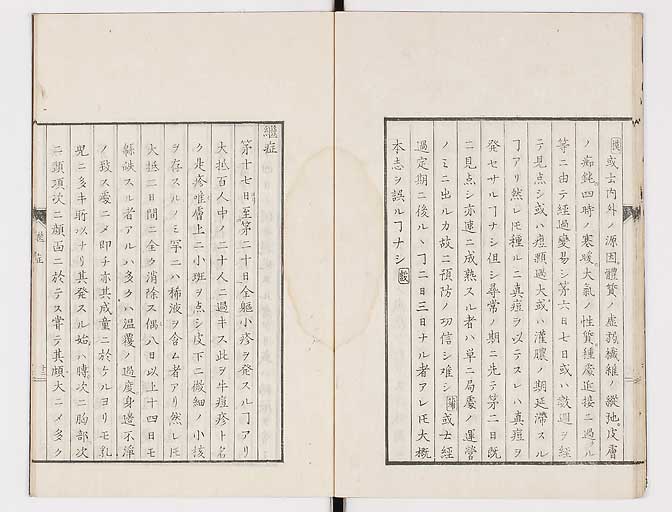 或士内外ノ源因。體質ノ虚弱、繊維ノ緩弛。皮膚
ノ痴鈍。四時ノ寒暖、大氣ノ性質、種處近接ニ過ル
等ニ由テ經過變易シ第六日七日或ハ數週ヲ經
テ見点シ或ハ痘顆過大、或ハ灌膿ノ期延滯スル
ヿアリ然レ𪜈種ルニ真痘ヲ以テスレハ真痘ヲ
發セサルヿナシ但シ尋常ノ期ニ先テ第二日既
ニ見点シ亦速ニ成熟スル者ハ單ニ局處ノ運營
ノミニ出ルカ故ニ預防ノ功信シ難シ 或士經
過定期ニ後ルヽヿ二日三日ナル者アレ𪜈大概
本志ヲ誤ルヿナシ
繼症
第十七日至第二十日全軀小疹ヲ發スルヿアリ
大抵百人中ノ二十人ニ過キス此ヲ牛痘疹ト名
ク是疹唯膚上ニ小斑ヲ点シ皮下ニ微細ノ小核
ヲ存スルノミ罕ニハ稀液ヲ含ム者アリ然レ𪜈
大抵二日間ニ全ク消除ス偶八日以上十四日モ
緜綴スル者アルハ多クハ温覆ノ過度身邊不潔
ノ致ス處ニメ即チ亦其成童ニ於ケルヨリモ乳
兒ニ多キ所以ナリ其発スル始ハ膊次ニ胸部次
ニ頸項次ニ顔面ニ於テス嘗テ其頗大ニメ多ク
繼症